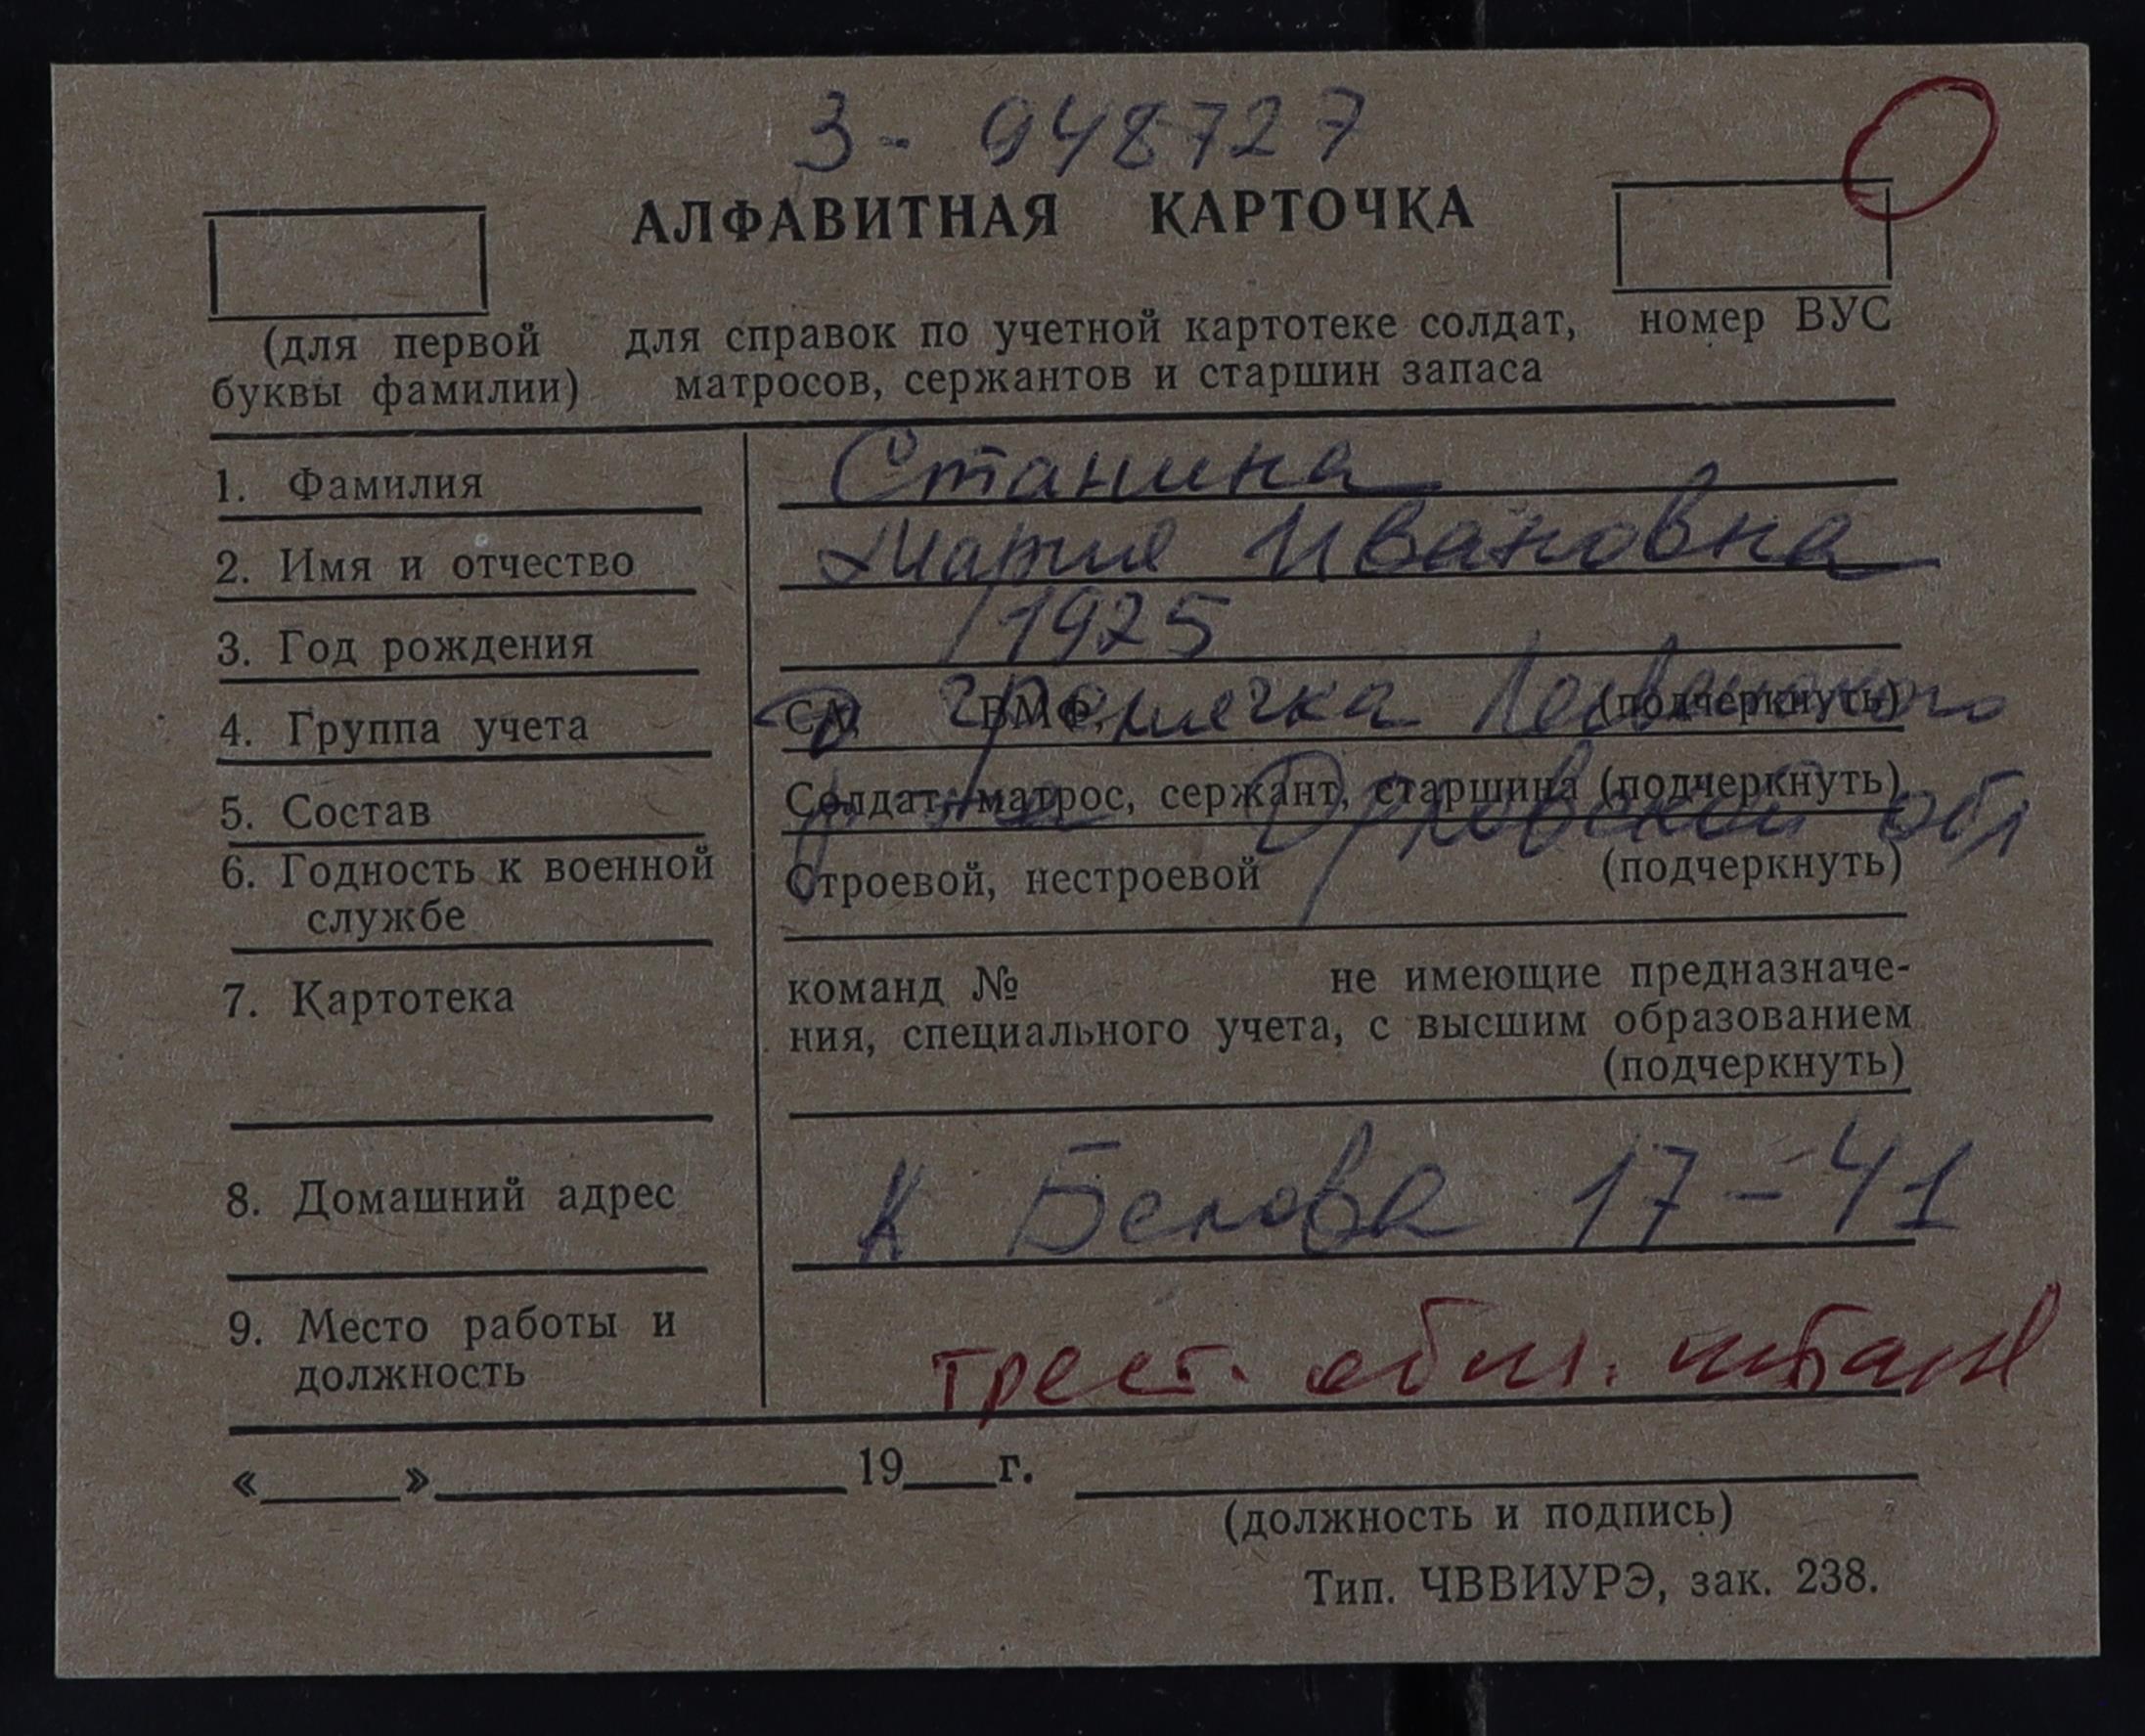 3-948727
АЛФАВИТНАЯ КАРТОЧКА
(для первой буквы фамилии)
для справок по учетной картотеке солдат,
матросов, сержантов и старшин запаса
номер ВУС
1. Фамилия Станина
2. Имя и отчество Мария Ивановна
3. Год рождения 1925
4. Группа учета СА, ВМФ, (подчеркнуть)
д Гремячка
5. Состав Солдат, матрос, сержант, старшина (подчеркнуть)
р-на Орловской обл
6. Годность к военной службе Строевой, нестроевой (подчеркнуть)
7. Картотека команд № не имеющие предназначе-
ния, специального учета, с высшим образованием
(подчеркнуть)
8. Домашний адрес К Белова 17-41
9. Место работы и должность
« » 19 г.
(должность и подпись)
Тип. ЧВВИУРЭ, зак. 238.